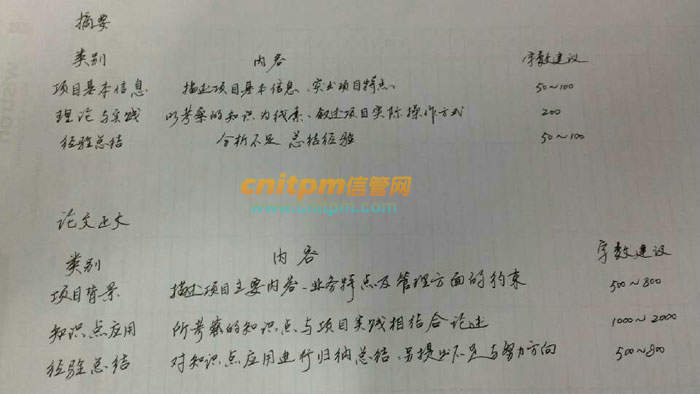 摘要
类别 内容 字数建议
项目基本信息 描述项目基本信息、突出项目特点。 50~100
理论与实践 以考察的知识为线索、叙述项目实际操作方式 200
经验总结 分析不足 总结经验 50~100
cnitpm信管网
www.cnitpm.com
论文正文
类别 内容 字数建议
项目背景 描述项目主要内容、业务特点及管理方面的约束 500~800
知识点应用 所考察的知识点与项目实践相结合论述 1000~2000
经验总结 对知识点应用进行归纳总结、另提出不足与努力方向 500~800